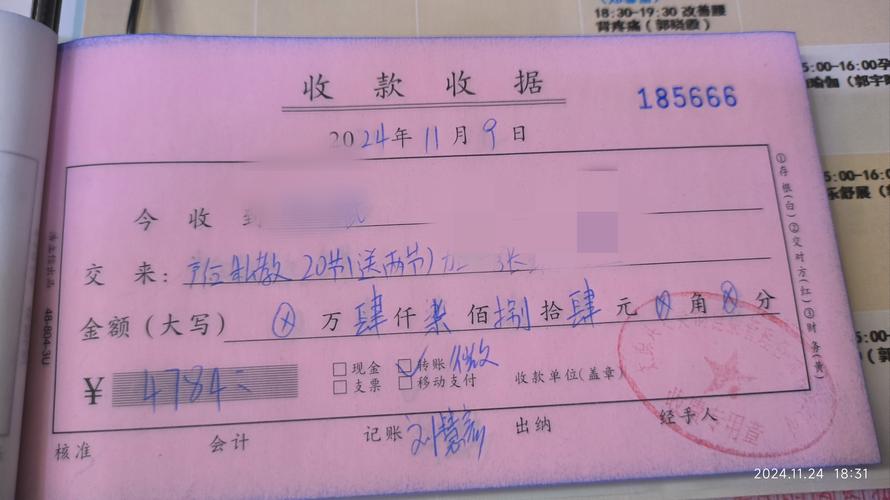 18:30-19:30 改善腰
背疼痛（郭晓霞）
5:00-16:00孕
瑜伽（郭宇
5:00-16:0
乐舒展（
收款收据
185666
2024年11月9日
今收到
交来：产后私教20节(送两节)
金额（大写）ⓧ万肆仟柒佰捌拾肆元ⓧ角ⓧ分
¥4784=
□现金 ☑转账/微
□支票 □移动支付
收款单位（盖章）
核准 会计 记账 出纳 经手人
①存根(白)②交对方(红)③财务(黄)
48-804-3U
专用章
2024.11.24 18:31